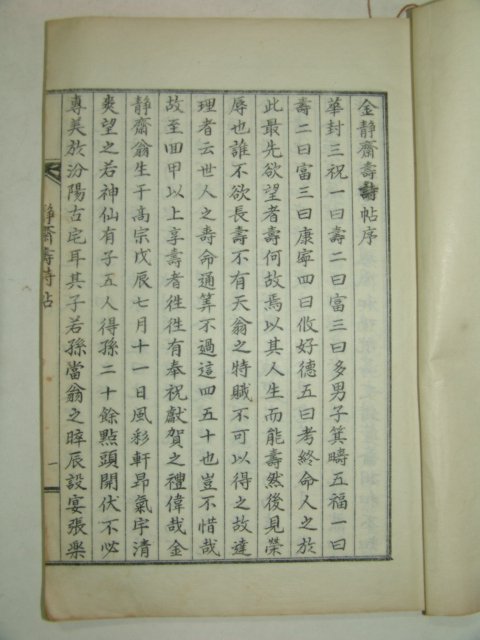 金静齋壽詩帖序
華封三祝一曰壽二曰富三曰多男子箕疇五福一曰
壽二曰富三曰康寧四曰攸好德五曰考終命人之於
此最先欲望者壽何故焉以其人生而能壽然後見榮
辱也誰不欲長壽不有天翁之特賦不可以得之故達
理者云世人之壽命通筭不過這四五十也豈不惜哉
故至回甲以上享壽者徃徃有奉祝獻賀之禮偉哉金
静齋翁生于高宗戊辰七月十一日風彩軒昻氣宇清
爽望之若神仙有子五人得孫二十餘點頭開伏不必
專美於汾陽古宅耳其子若孫當翁之晬辰設宴張樂
静齋壽詩帖
一